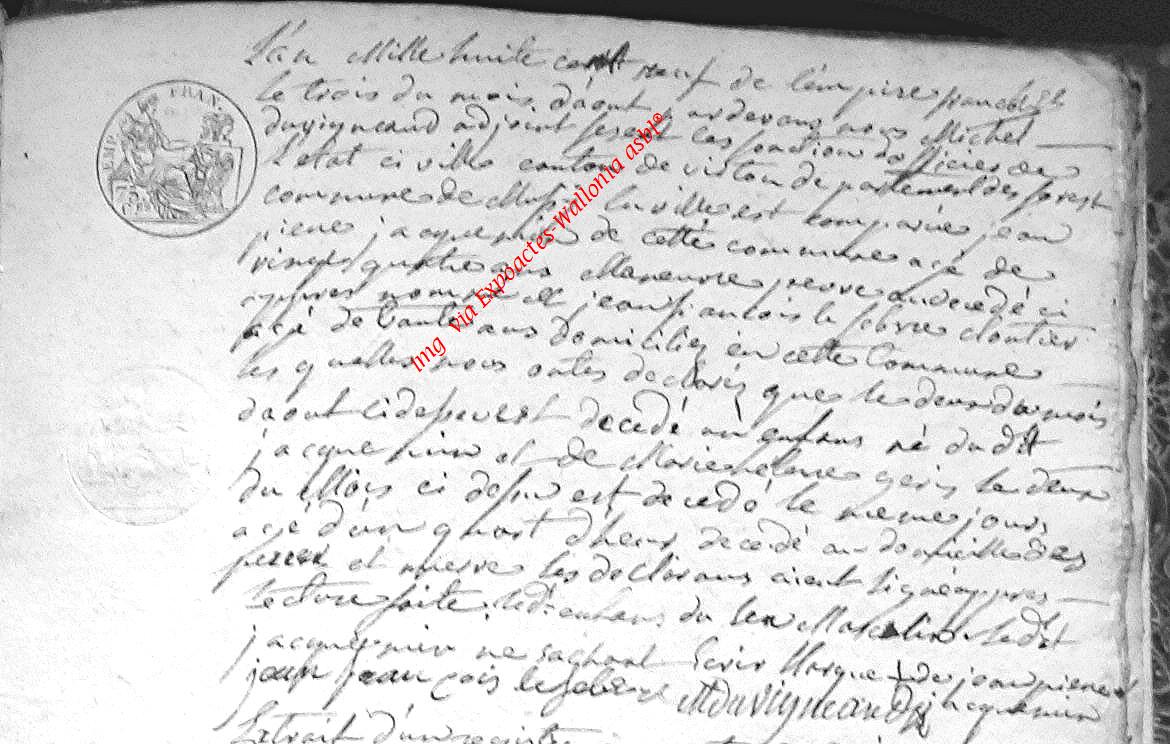 L'an Mille huite cent neuf de l'empire francois
le trois du mois d'aout pardevant nous Michel
Duvigneaud adjoint les fonction d'officier de
l'etat civille canton de virton departement des forest
commune de Mussi la ville est comparue jean
piere jacquemin de cette commune agé de
vingt quatre ans Maneuvre perre au decedé ci
apres nomé et jean francois le febvre cloutier
agé de trante ans domicilies en cette Commune
les quelles nous ontes declarés que le deux du mois
daout ci dessus est decedé un enfans né du dit
jacquemin et de Marie helene geris le deux
du Mois ci desu est decedé le meme jours
agé d'un quart d'heur decedé au domicille des
perres et merre les declarans aient signé appres
lecture faite, ledi enfans du sex Masculin ledit
jacquemin ne sachant Ecrir Marque + de jean piere
jean françois lefebvre MDuvigneaud jacquemin
Extrait d'un registre
EMP. FRAN.
Img via Expoactes-Wallonia asbl®